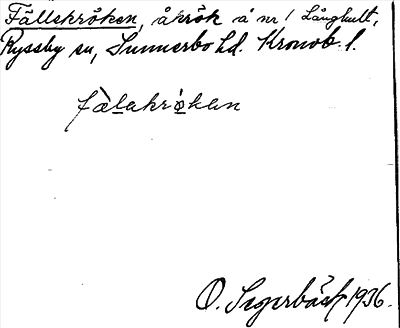 Fällekröken, åkrök å nr 1 Långhult,
Ryssby sn, Sunnerbo hd. Kronob. l.
fàlakrö̀kan
O. Segerbäck 1936.